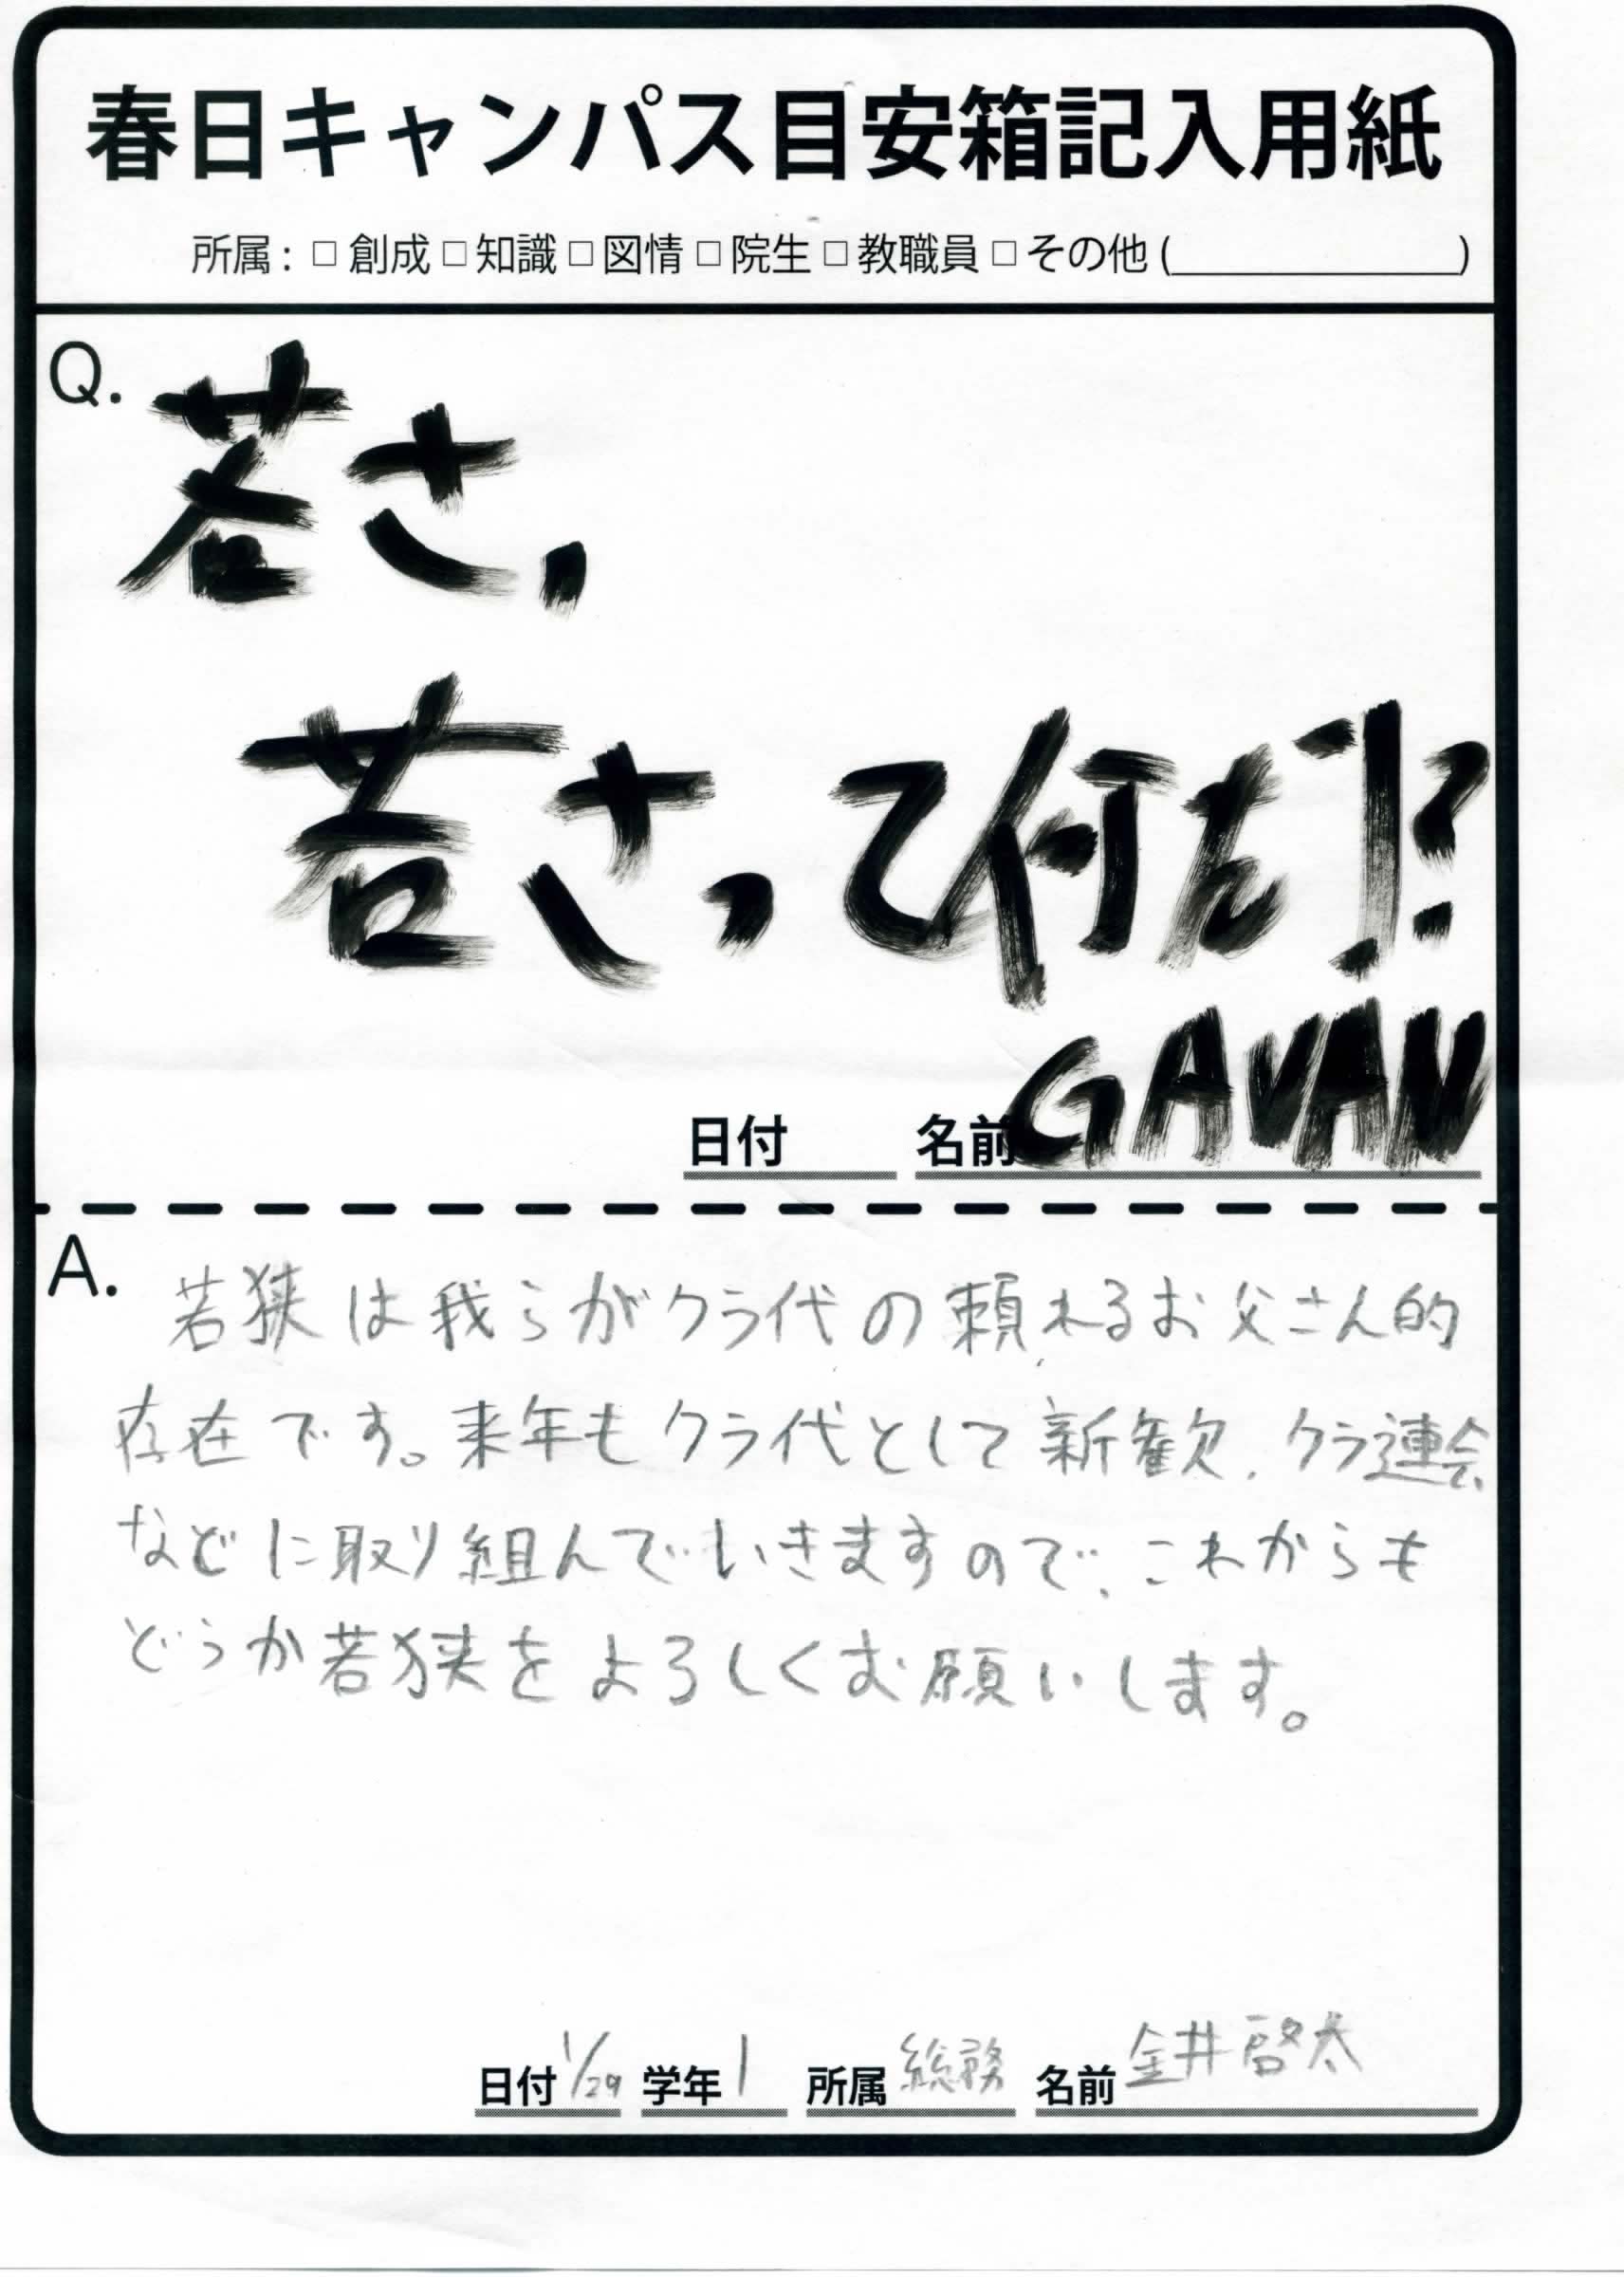 春日キャンパス目安箱記入用紙
所属：□ 創成 □ 知識 □ 図情 □ 院生 □ 教職員 □ その他 (＿＿＿＿＿＿)
Q.
若さ,
若さって何だ!?
日付 名前 GAVAN
A.
若狭は我らがクラ代の頼れるお父さん的
存在です。来年もクラ代として新歓、クラ連会
などに取り組んでいきますので、これからも
どうか若狭をよろしくお願いします。
日付 1/29 学年 1 所属 総務 名前 金井啓太